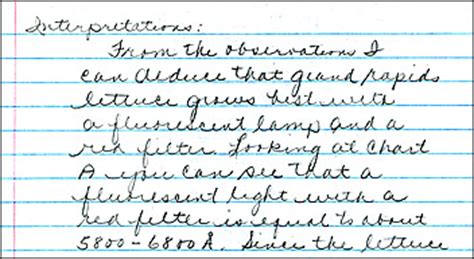 Interpretations:
From the observations I
can deduce that grand rapids
lettuce grows best with
a fluorescent lamp and a
red filter. Looking at Chart
A you can see that a
fluorescent light with a
red filter is equal to about
5800-6800 Å. Since the lettuce